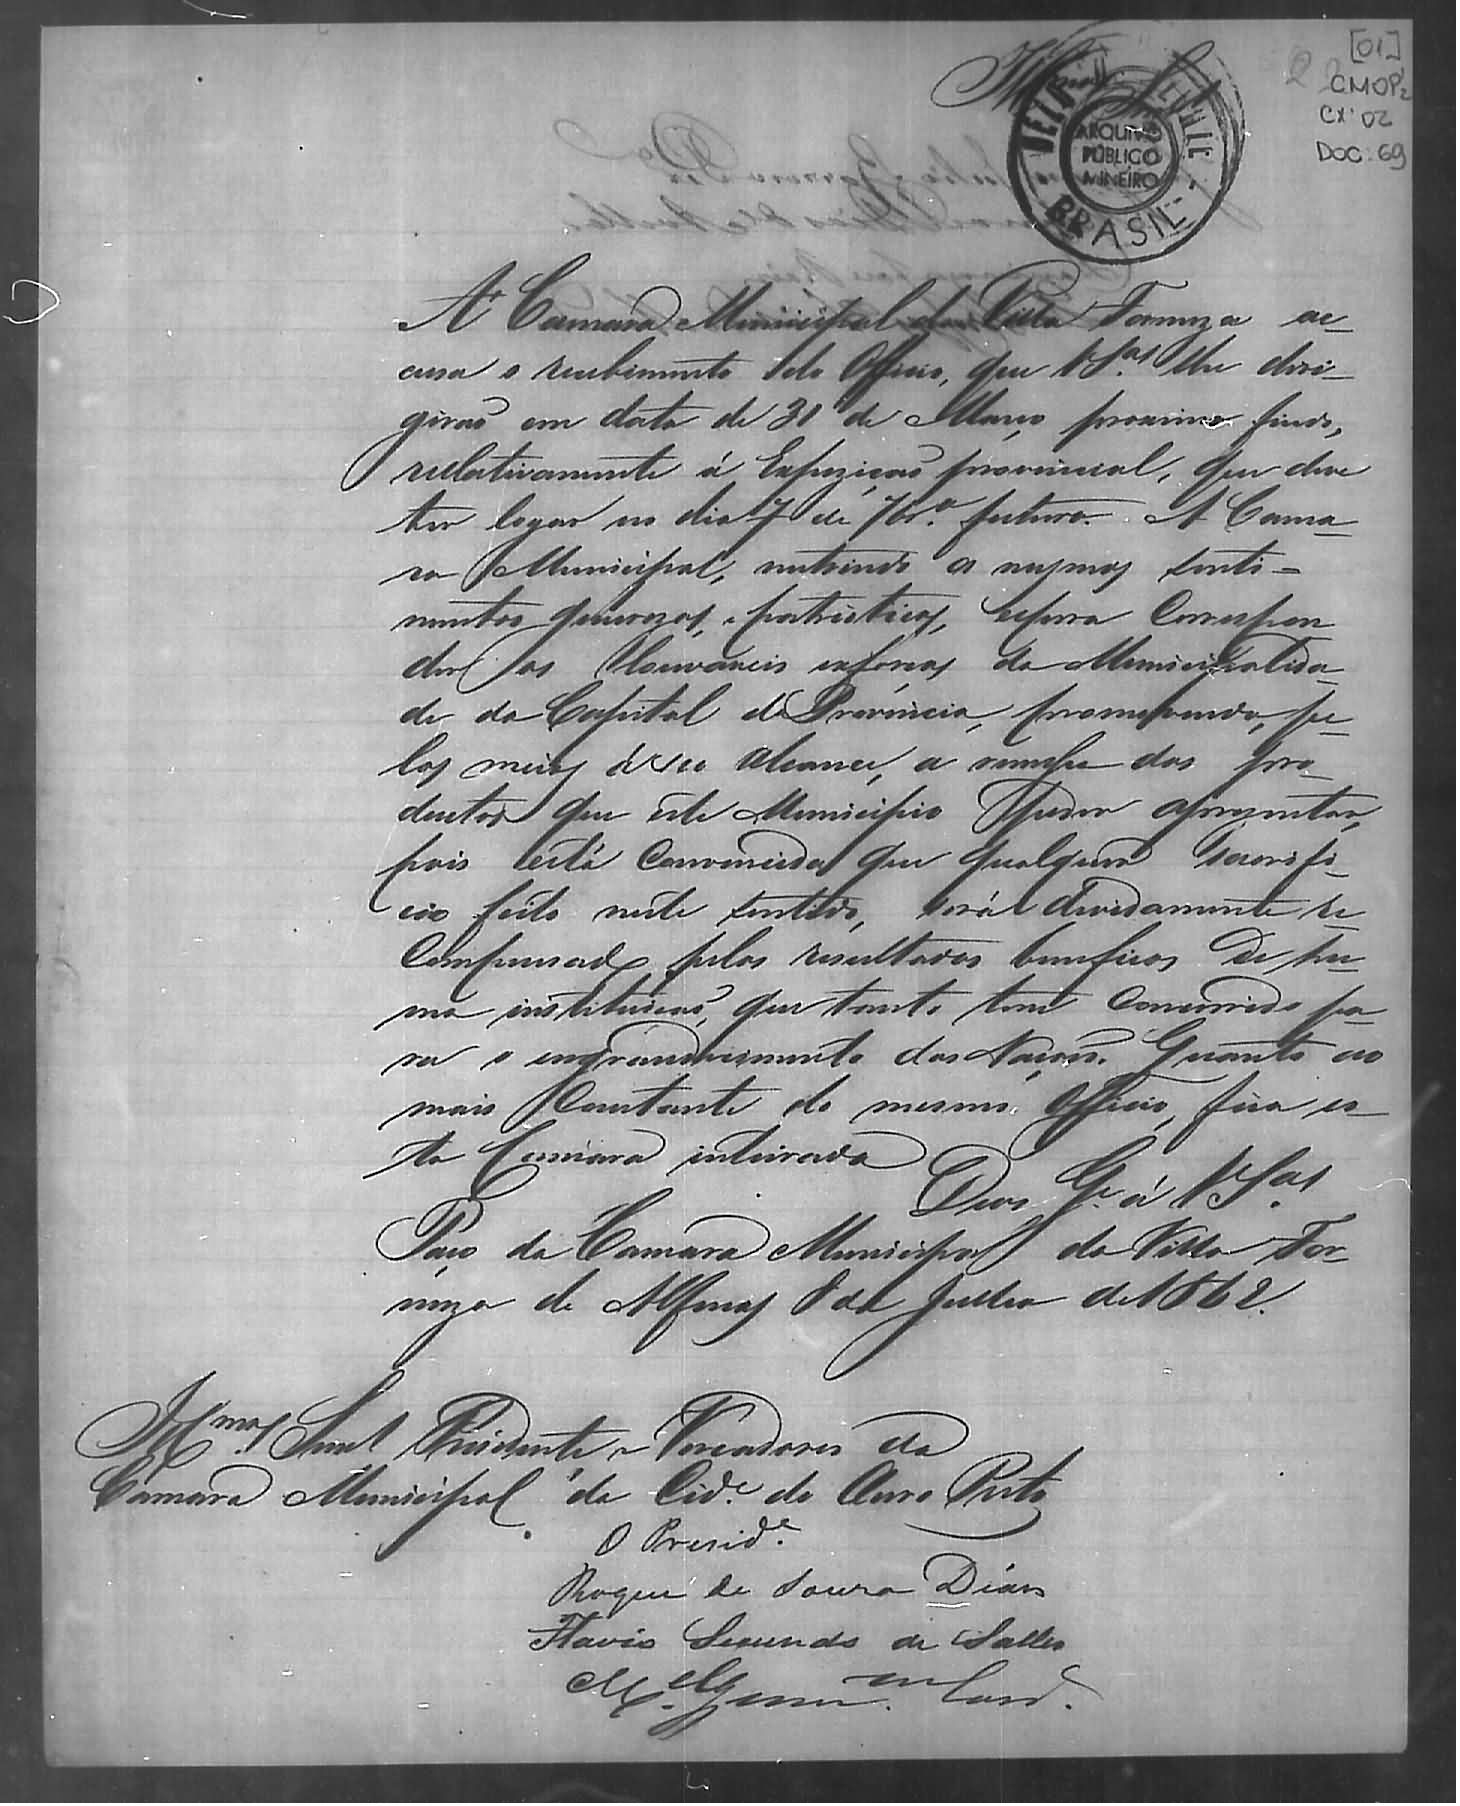 [01]
CMOP
CX: 02
DOC: 69
ARQUIVO
PÚBLICO
MINEIRO
BRASIL
A Camara Municipal da Villa Formoza ac-
cusa o recebimento do Officio, que VSas. lhe diri-
girão em data de 31 de Março proximo findo,
relativamente á Expozição provincial, que deve
ter logar no dia 7 de 7br.o futuro. A Cama-
ra Municipal, nutrindo os mesmos senti-
mentos generozos, e patrioticos, espera Correspon
der as louvaveis esforços da Municipalida-
de da Capital da Provincia, promovendo, pe-
los meios á seo alcance, a remessa dos pro-
ductos que este Municipio possa aprezentar,
pois está Convencida que qualquer sacrifi-
cio feito neste sentido, será devidamente re
Compensado pelos resultados beneficos de hu-
ma instituição, que tanto tem Concorrido pa-
ra o engrandecimento das Nações. Quanto ao
mais Constante do mesmo Officio, fica es-
ta Camara inteirada
Deos G.e á VSas.
Paço da Camara Municipal da Villa For-
moza de Alfenas 8 de Julho de 1862.
Illmos. Snres Prezidente e Vereadores da
Camara Municipal da Cid.e do Ouro Preto
O Presid.e
Roque de Souza Dias
Flavio Secundo de Salles